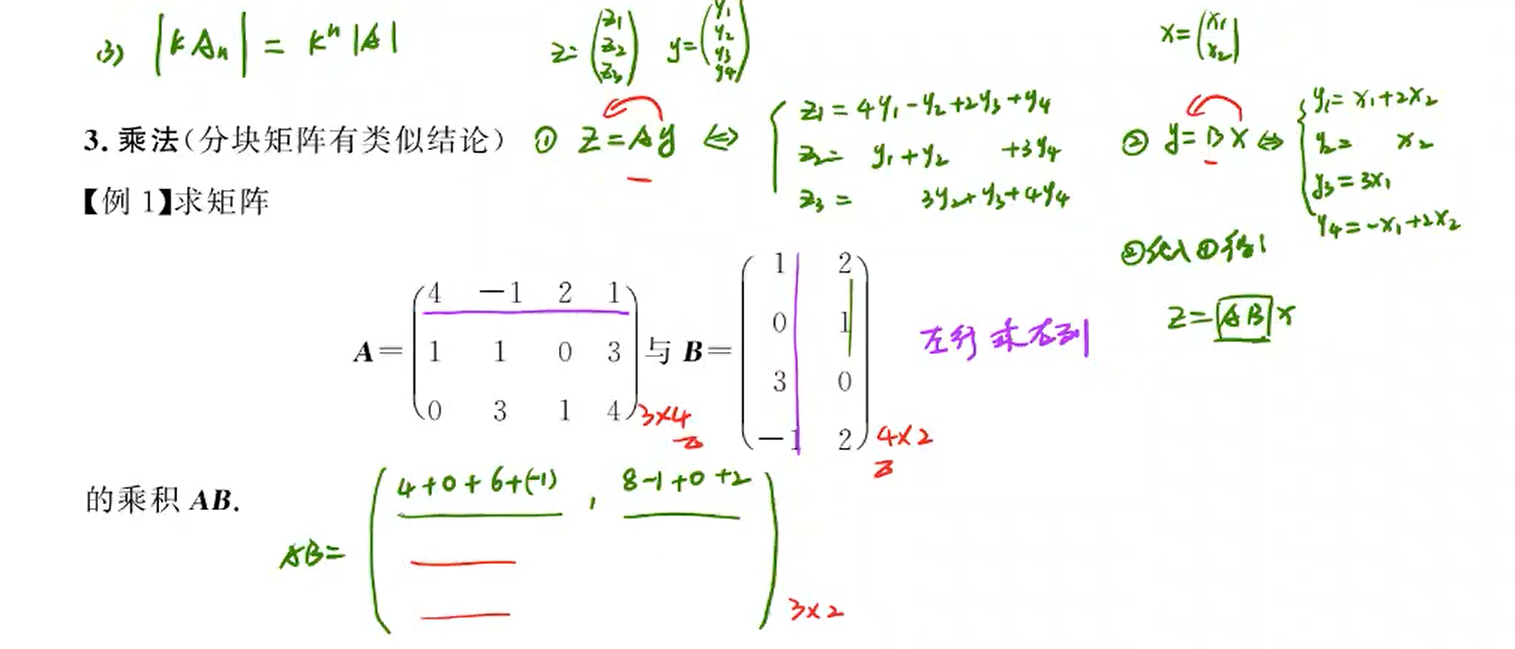 (3) |kAₙ| = kⁿ|A|
z=(z₁ z₂ z₃) y=(y₁ y₂ y₃ y₄) x=(x₁ x₂)
3. 乘法(分块矩阵有类似结论) ① z=Ay ⇔
z₁=4y₁-y₂+2y₃+y₄
z₂= y₁+y₂ +3y₄
z₃= 3y₂+y₃+4y₄
② y=Bx ⇔
y₁=x₁+2x₂
y₂= x₂
y₃=3x₁
y₄=-x₁+2x₂
【例 1】求矩阵
②代入①得!
z=AB x
A=
4 -1 2 1
1 1 0 3
0 3 1 4
3×4
与 B=
1 2
0 1
3 0
-1 2
4×2
左行乘右列
的乘积 AB.
AB=
4+0+6+(-1) , 8-1+0+2
3×2